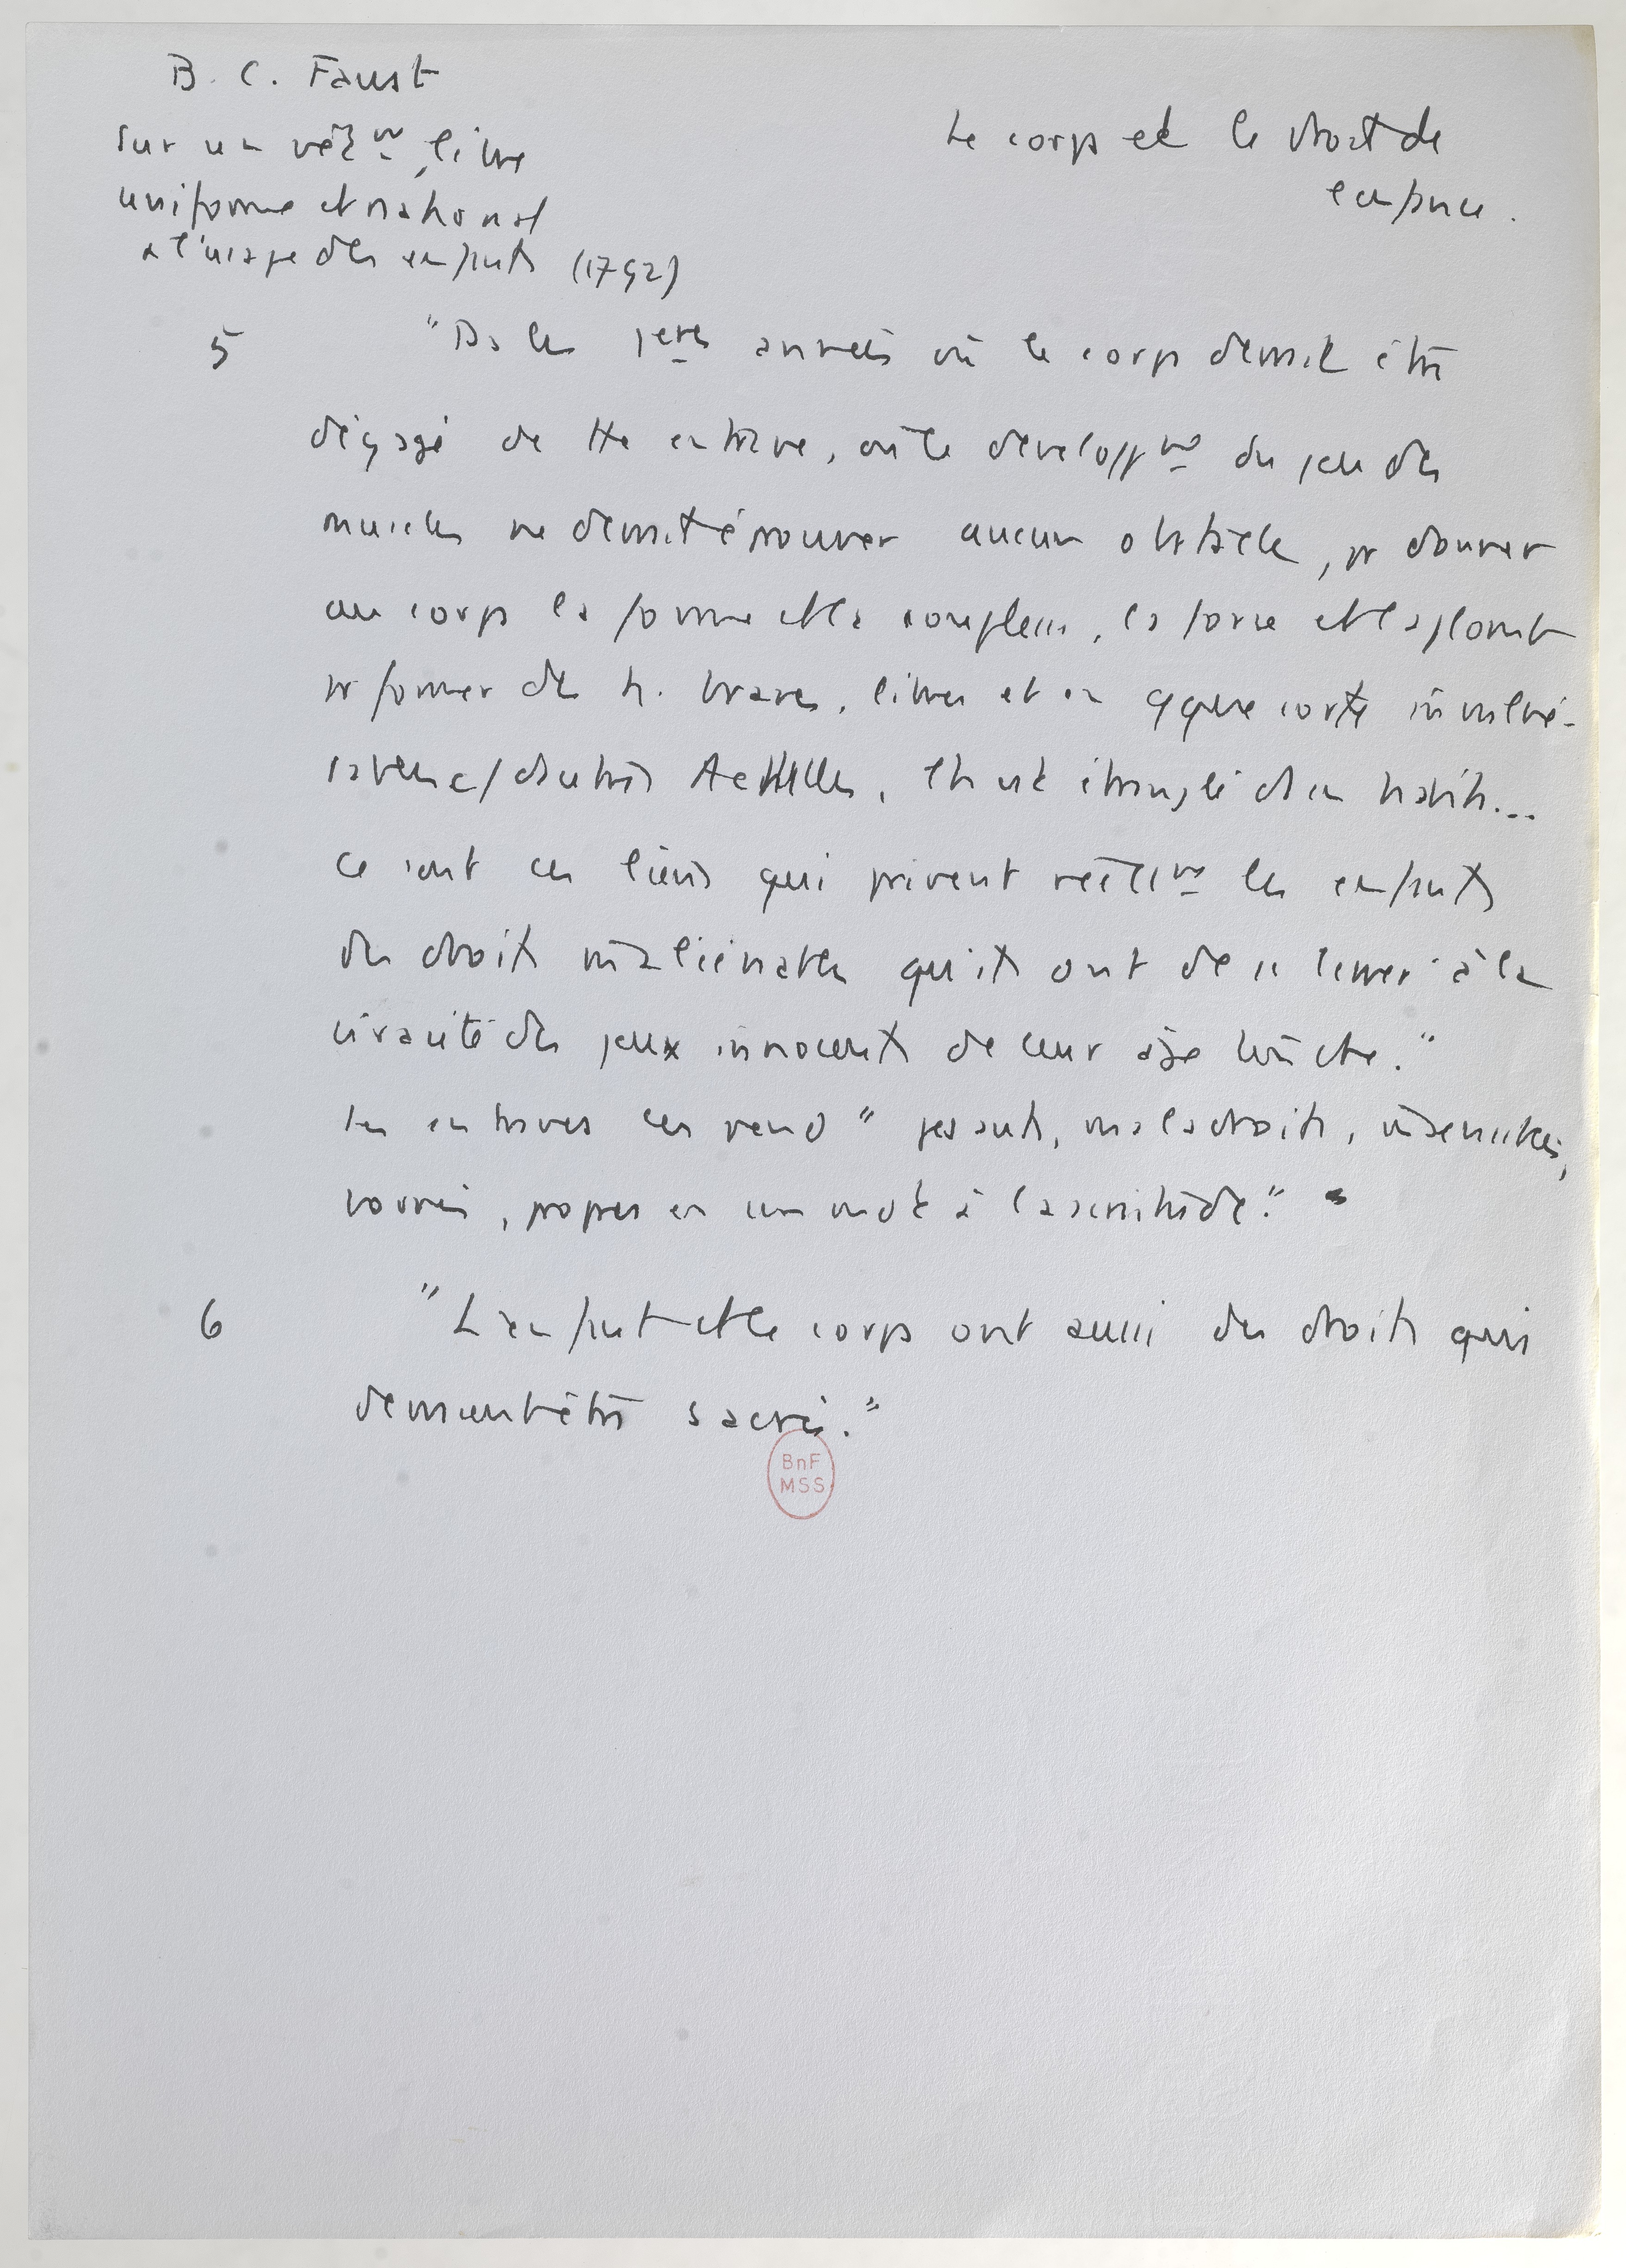 B. C. Faust
Sur un vêt^mt libre
uniforme et national
à l'usage des enfants (1792)
Le corps et le droit de
l'enfance.
5 "Ds les 1eres années où le corps devrait être
dégagé de tte entrave, où le développ^mt du jeu des
muscles ne devrait éprouver aucun obstacle, pr donner
au corps la forme et la souplesse, la force et la
pr former des h. braves, libres et en qque sorte invulné-
d'autres Achilles, tt est étranglé ds un habit...
Ce sont ces liens qui privent réell^mt les enfants
des droits inaliénables qu'ils ont de se livrer à la
vivacité des jeux innocents de leur âge tendre."
Les entraves les rend "pesants, maladroits,
bornés, propres en un mot à la servitude."
6 "L'enfant et le corps ont aussi des droits qui
devraient être sacrés."
BnF
MSS